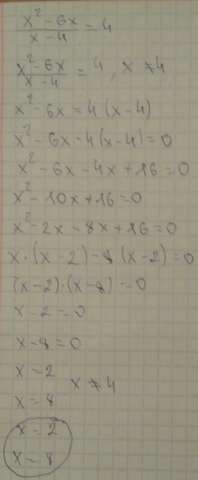 x² - 6x / x - 4 = 4
x² - 6x / x - 4 = 4, x ≠ 4
x² - 6x = 4(x - 4)
x² - 6x - 4(x - 4) = 0
x² - 6x - 4x + 16 = 0
x² - 10x + 16 = 0
x² - 2x - 8x + 16 = 0
x · (x - 2) - 8(x - 2) = 0
(x - 2) · (x - 8) = 0
x - 2 = 0
x - 8 = 0
x = 2
x = 8 x ≠ 4
x = 2
x = 8